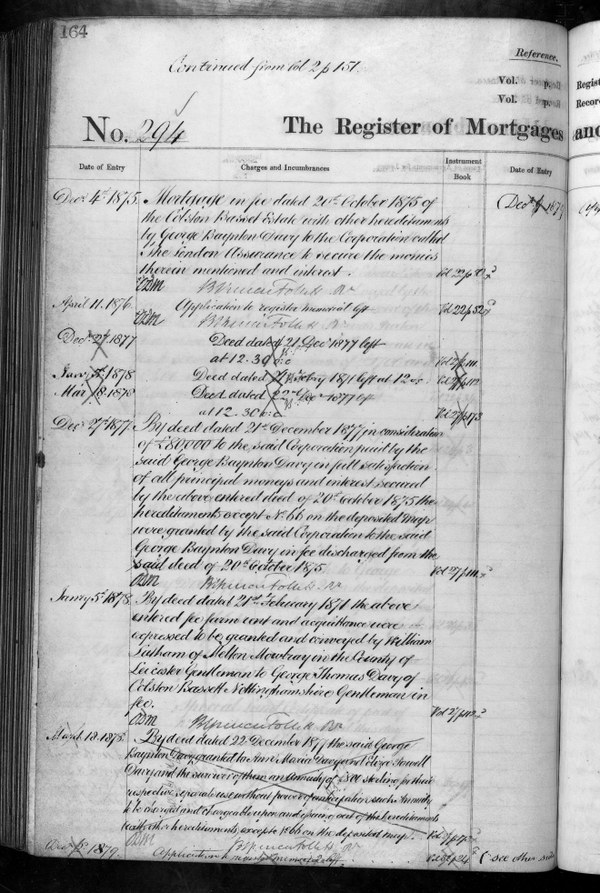 164
Continued from Vol 2 p 151.
Reference.
Vol. p.
Vol. p.
No. 294
The Register of Mortgages
and
Regist
Recor
Date of Entry
Charges and Incumbrances
Instrument Book
Date of Entry
Decr 4th 1875.
Mortgage in fee dated 20th October 1875 of
the Colston Basset Estate with other hereditaments
by George Baynton Davy to the Corporation called
The London Assurance to secure the monies
therein mentioned and interest.
April 11. 1876.
Application to register memorial left
Vol 22 p 52
Decr 27th 1877
Deed dated 21 Decr 1877 left
at 12.30 o.c
Vol 27 p 111
Jany 5th 1878
Deed dated 21 Feby 1871 left at 12 o.c
Vol 27 p 112
Mar 18. 1878
Deed dated 22nd Decr 1877 left
at 12.30 o.c
Vol 27 p 173
Decr 27th 1877
By deed dated 21st December 1877 in consideration
of £80000 to the said Corporation paid by the
said George Baynton Davy in full satisfaction
of all principal moneys and interest secured
by the above entered deed of 20th October 1875 the
hereditaments except No. 66 on the deposited map
were granted by the said Corporation to the said
George Baynton Davy in fee discharged from the
said deed of 20th October 1875
Vol 27 p 111
January 5th 1878.
By deed dated 21st February 1871 the above
entered fee farm rent and acquittance were
expressed to be granted and conveyed by William
Latham of Melton Mowbray in the County of
Leicester Gentleman to George Thomas Davy of
Colston Bassett Nottinghamshire Gentleman in
fee.
Vol 27 p 112
March 18. 1878.
By deed dated 22 December 1877 the said George
Baynton Davy granted to Ann Maria Davy and
Davy and the survivor of them an Annuity of £300 sterling for their
respective separate use without power of anticipation such Annuity
to be charged and chargeable upon and issuing out of the hereditaments
with other hereditaments except No 66 on the deposited map.
Decr 5th 1879
Application to register memorial left
(see other side